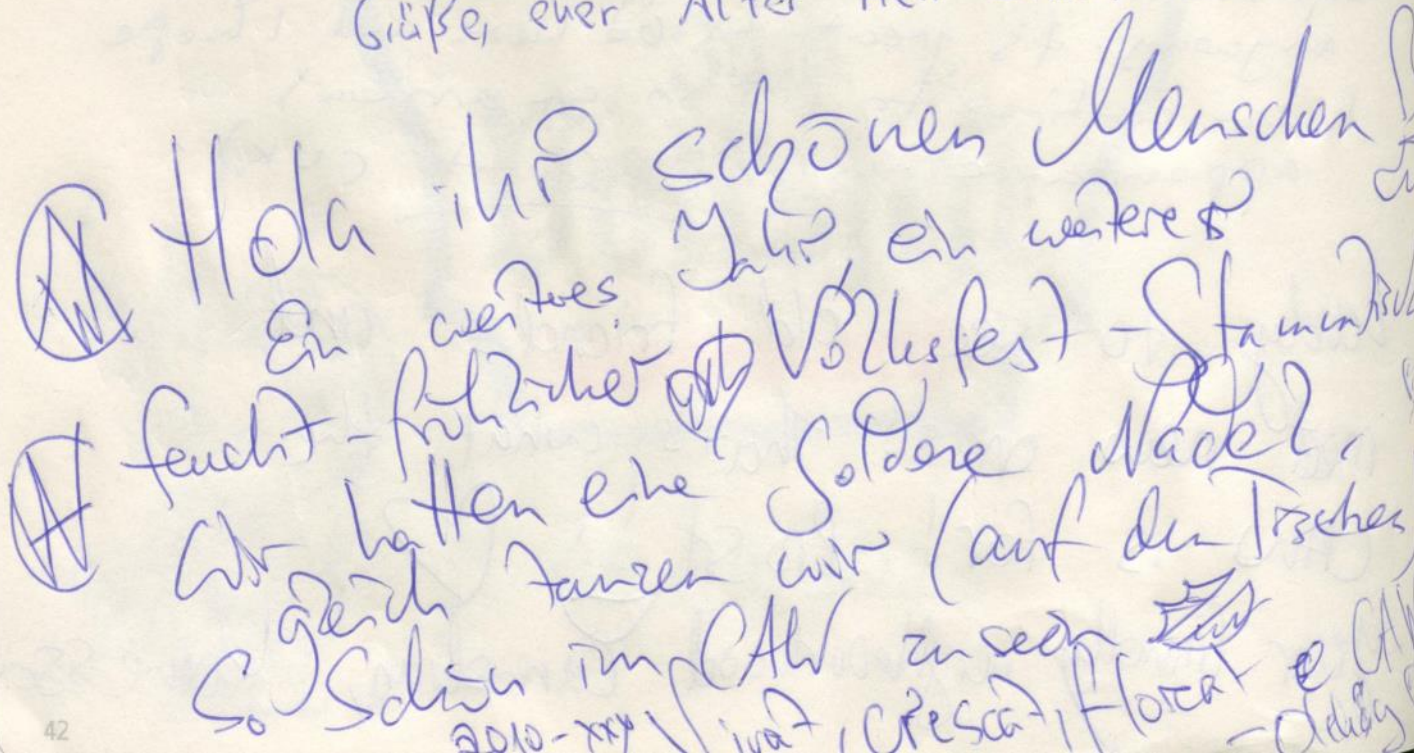 Grüße, euer Alter
Hola ihr schönen Menschen
Ein weiteres Jahr, ein weiterer
feucht-fröhlicher Volksfest-Stammtisch
Wir hatten eine Goldene Nadel,
gleich tanzen wir (auf den Tischen
So Schön im CAW zu sein
2010-xxx Vivat, crescat, floreat
42